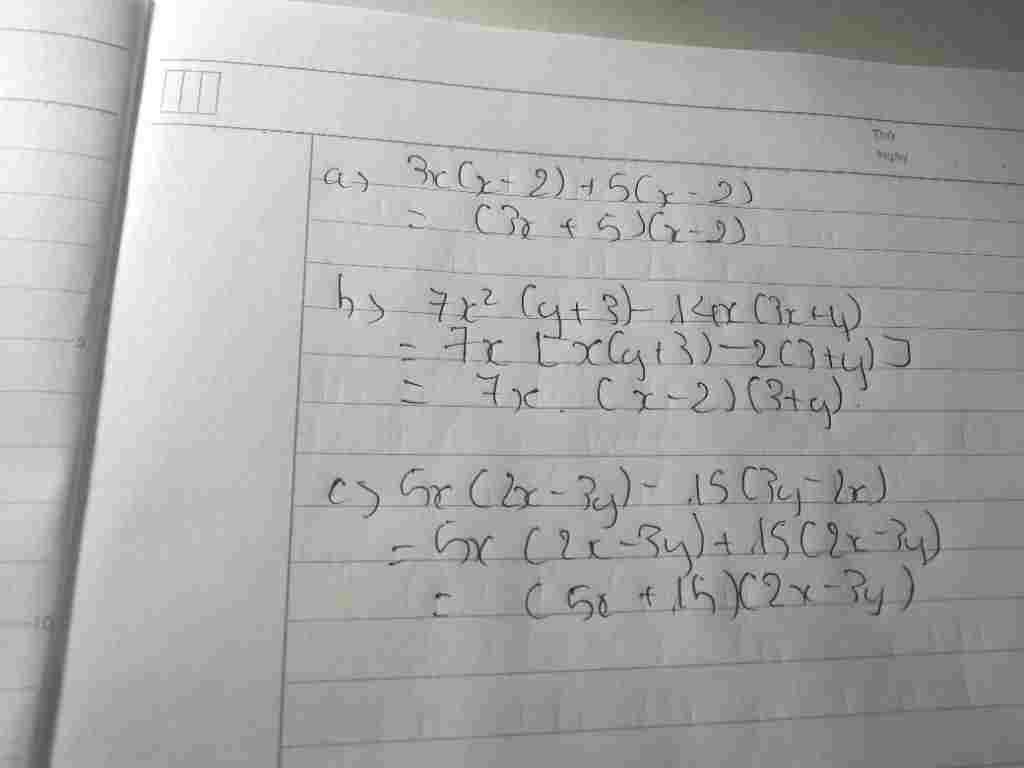 a) 3x(x - 2) + 5(x - 2)
= (3x + 5)(x - 2)
b) 7x² (y + 3) - 14x (3x + y)
= 7x [x(y + 3) - 2(3 + y)]
= 7x . (x - 2)(3 + y)
c) 5x (2x - 3y) - 15(3y - 2x)
= 5x (2x - 3y) + 15(2x - 3y)
= (5x + 15)(2x - 3y)